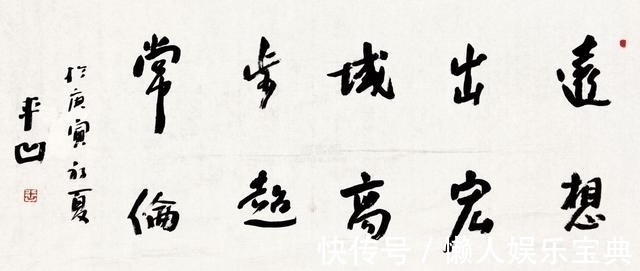 遠想
出宏
域高
步超
常倫
於庚寅初夏
平凹
快传号/懒人娱乐宝典